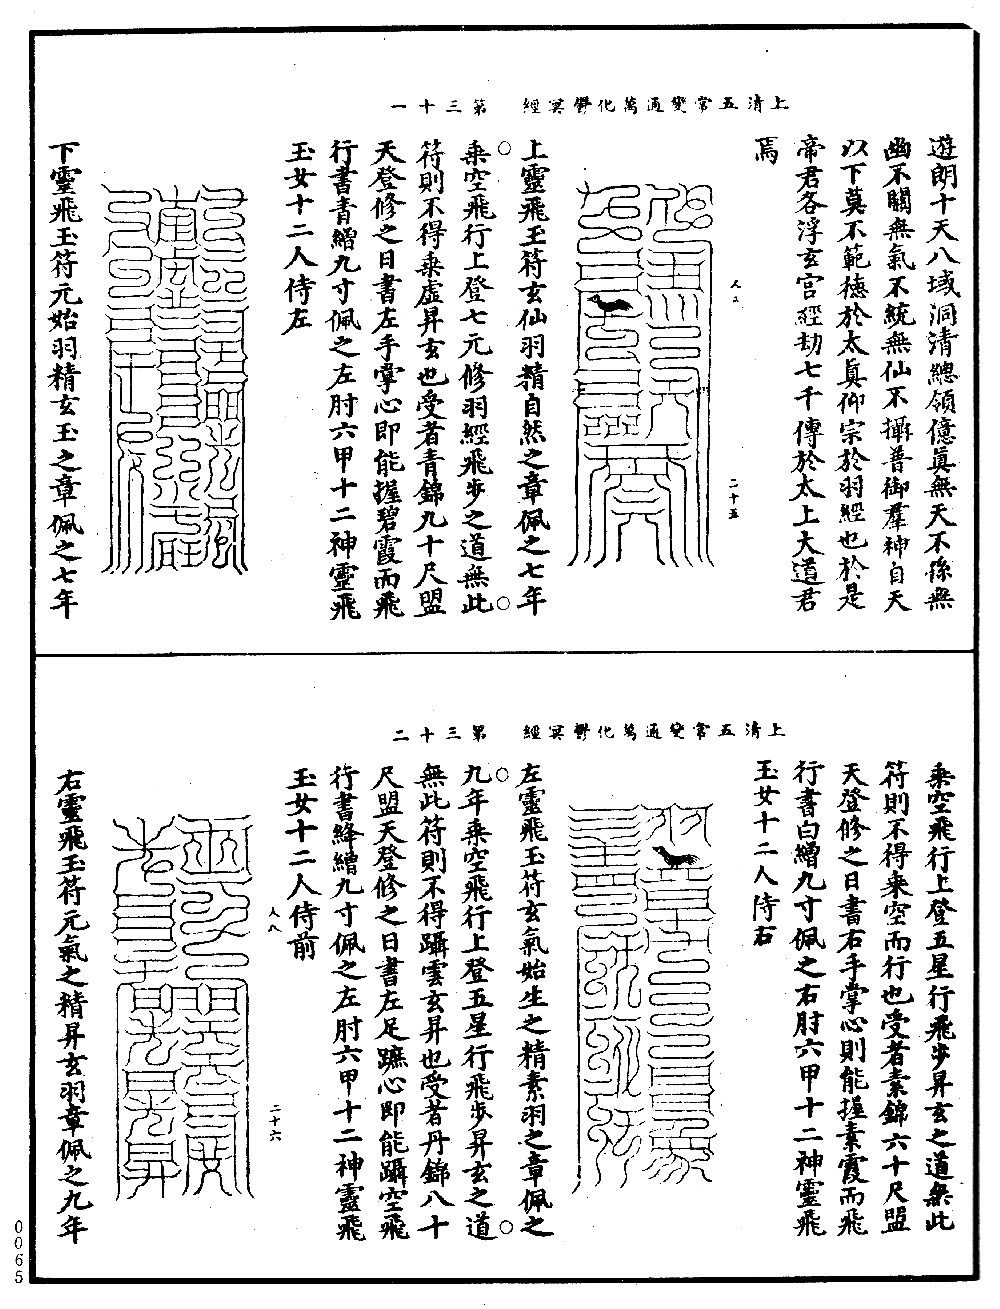 上清五常變通萬化鬱冥經　第三十一
遊朗十天八域洞清總領億眞無天不係無
幽不關無氣不統無仙不攝普御羣神自天
以下莫不範德於太眞仰宗於羽經也於是
帝君各浮玄宮經劫七千傳於太上大道君
焉
二十五
上靈飛玉符玄仙羽精自然之章佩之七年
乘空飛行上登七元修羽經飛步之道無此
符則不得乘虛昇玄也受者青錦九十尺盟
天登修之日書左手掌心即能握碧霞而飛
行書青繒九寸佩之左肘六甲十二神靈飛
玉女十二人侍左
下靈飛玉符元始羽精玄玉之章佩之七年
上清五常變通萬化鬱冥經　第三十二
乘空飛行上登五星行飛步昇玄之道無此
符則不得乘空而行也受者素錦六十尺盟
天登修之日書右手掌心則能握素霞而飛
行書白繒九寸佩之右肘六甲十二神靈飛
玉女十二人侍右
左靈飛玉符玄氣始生之精素羽之章佩之
九年乘空飛行上登五星行飛步昇玄之道
無此符則不得躡雲玄昇也受者丹錦八十
尺盟天登修之日書左足蹠心即能躡空飛
行書絳繒九寸佩之左肘六甲十二神靈飛
玉女十二人侍前
人八
二十六
右靈飛玉符元氣之精昇玄羽章佩之九年
0065